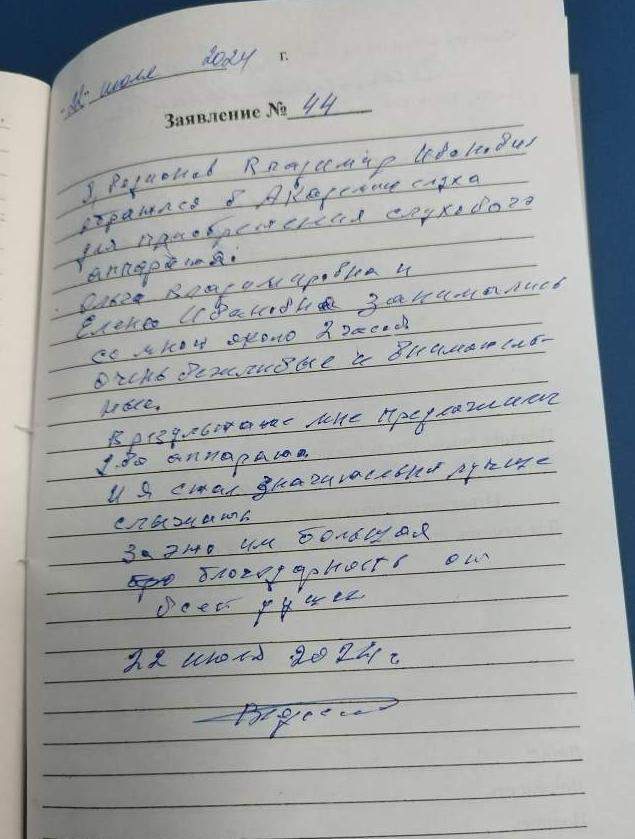 "22" июля 2024 г.
Заявление № 44
Я, Владимир Иванович
обратился в Академию слуха
для приобретения слухового
аппарата.
Ольга Владимировна и
Елена Ивановна занимались
со мной около 2 часов
очень вежливые и вниматель-
ные.
В результате мне предложили
два аппарата
И я стал значительно лучше
слышать
За это им большая
благодарность от
всей души
22 июля 2024 г